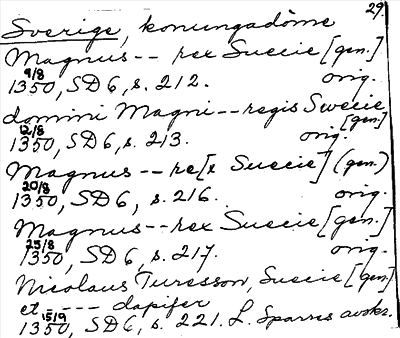 29.
Sverige, konungadöme
Magnus -- rex Suecie [gen.]
9/8
1350, SD 6, s. 212. orig.
domini Magni -- regis Swecie
[gen]
12/8
1350, SD 6, s. 213. orig.
Magnus -- re[x Suecie] (gen.)
20/8
1350, SD 6, s. 216. orig.
Magnus -- rex Suecie [gen.]
25/8
1350, SD 6, s. 217. orig.
Nicolaus Turesson, Suecie [gen]
et --- dapifer
15/9
1350, SD 6, s. 221. L. Sparres avskr.